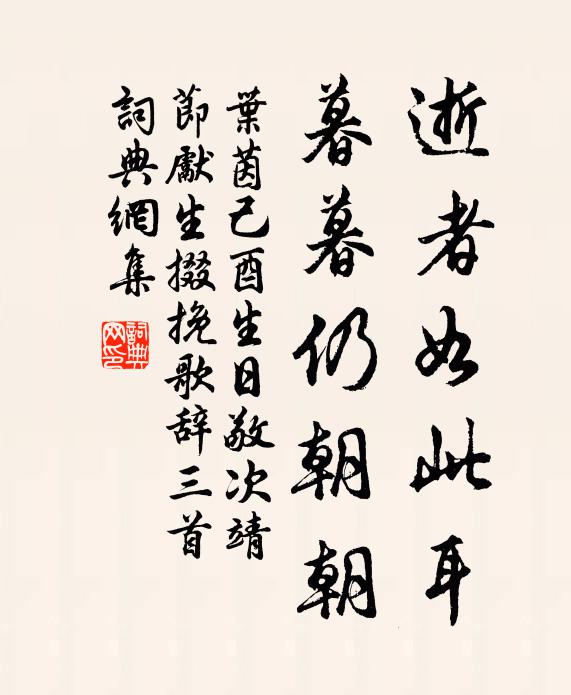 逝者如此耳
暮暮仍朝朝
葉茵己酉生日敬次靖
節獻生掇挽歌辞三首
詞典網集
詞典
网印